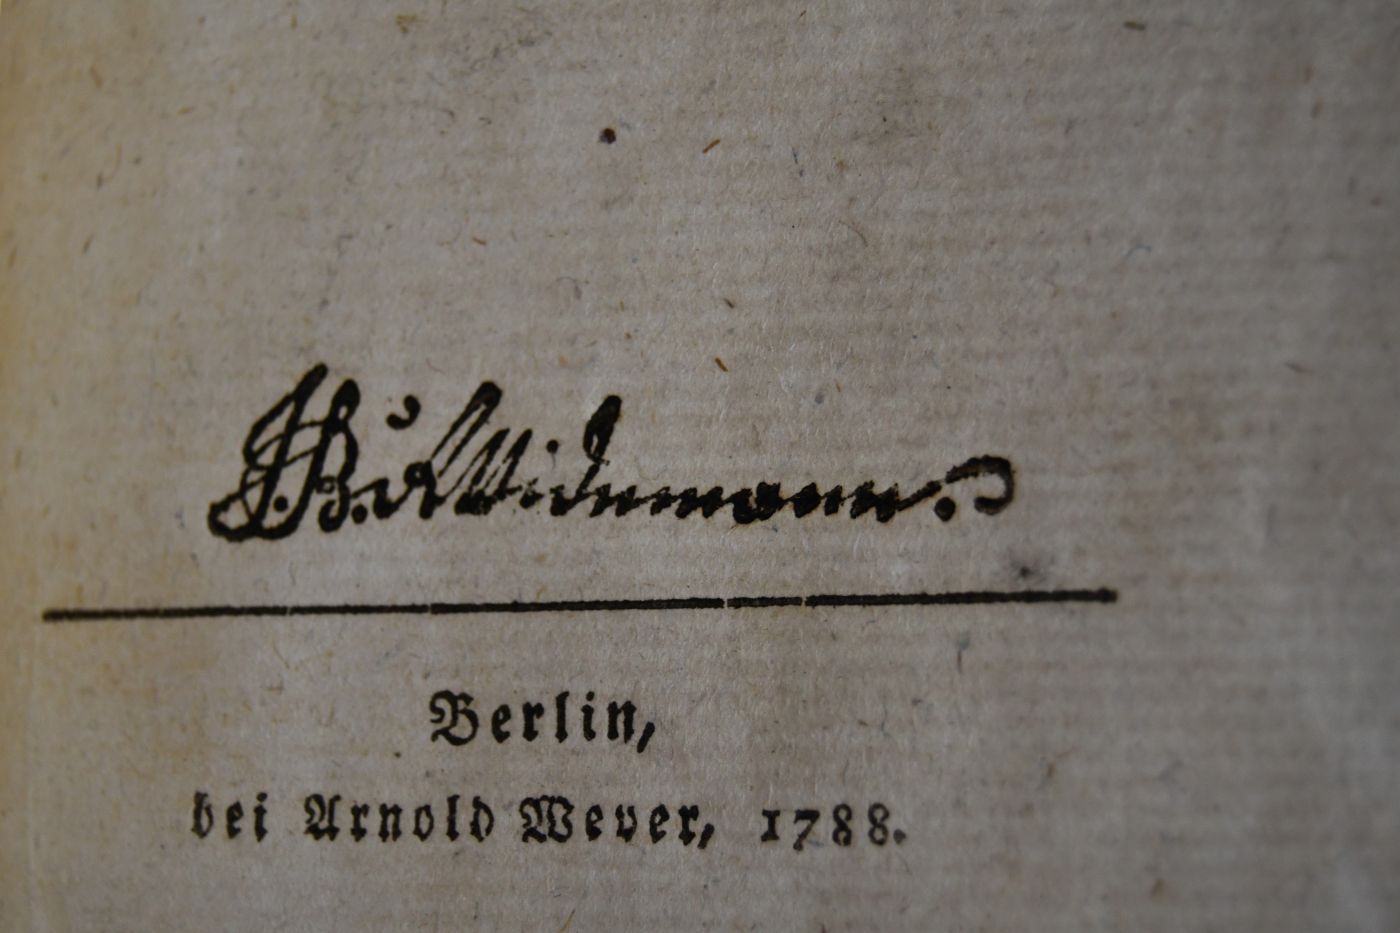 J. B. v Widnmann.
Berlin,
bei Arnold Wever, 1788.